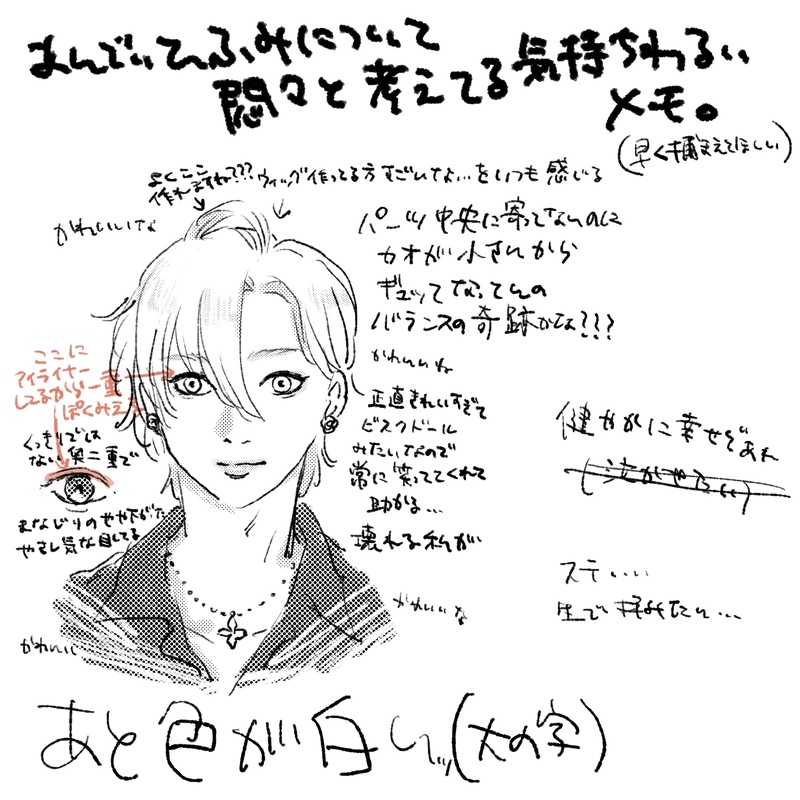 まんでぃてふみについて
悶々と考えてる気持ちわるい
メモ。
(早く捕まえてほしい)
よくここ
作れますね???
ウィッグ作ってる方すごいてな…をいつも感じる
かわいいな
パーツ中央に寄ってないのに
カオが小さいから
ギュッてなってんの
バランスの奇跡かな???
かわいいね
ここに
アイライナー
してるから一重
ぽくみえる
くっきりでは
ない奥二重で
まなじりのやや下がった
やさし気な目してる
正直きれいすぎて
ビスクドール
みたいなので
常に笑っててくれて
助かる…
壊れる私が
健やかに幸せであれ
ステ……
生で拝みたい…
かわいいな
かわいい
あと色が白いッ(大の字)